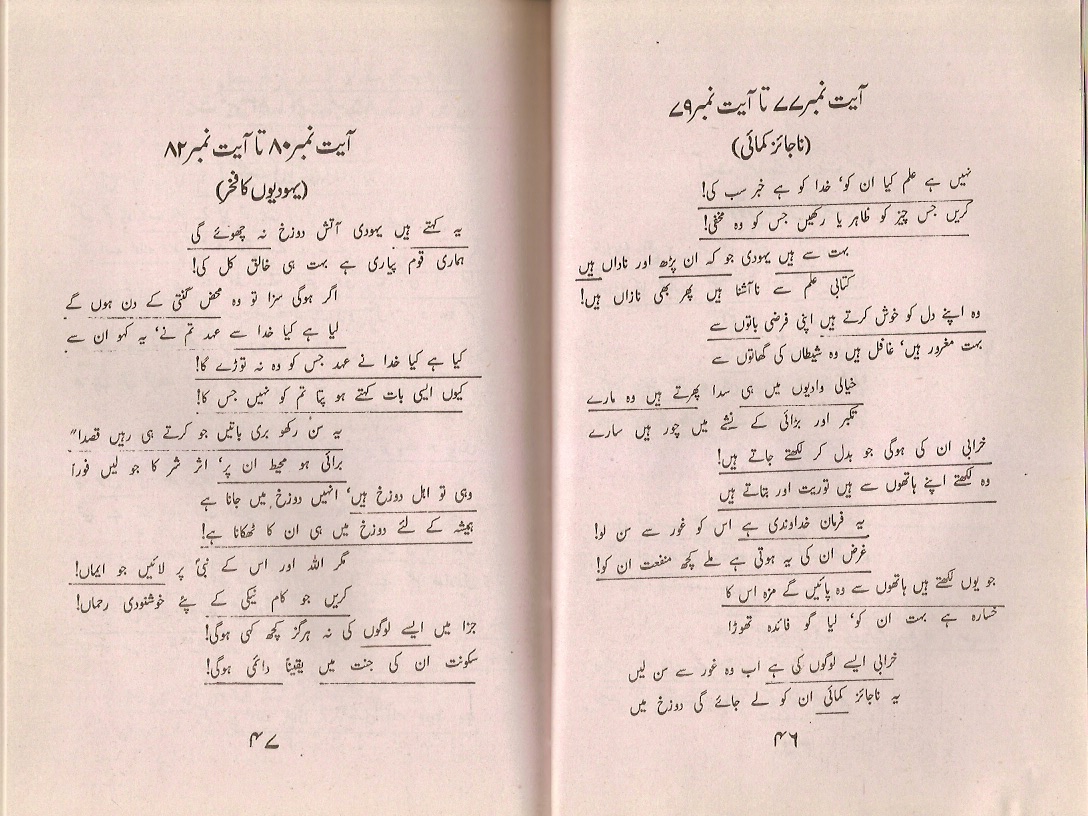 آیت نمبر۷۷ تا آیت نمبر۷۹
(ناجائز کمائی)
نہیں ہے علم کیا ان کو‘ خدا کو ہے خبر سب کی!
کریں جس چیز کو ظاہر یا رکھیں جس کو وہ مخفی!
بہت سے ہیں یہودی جو کہ ان پڑھ اور ناداں ہیں
کتابی علم سے ناآشنا ہیں پھر بھی نازاں ہیں!
وہ اپنے دل کو خوش کرتے ہیں اپنی فرضی باتوں سے
بہت مغرور ہیں‘ غافل ہیں وہ شیطاں کی گھاتوں سے
خیالی وادیوں میں ہی سدا پھرتے ہیں وہ مارے
تکبر اور بڑائی کے نشے میں چور ہیں سارے
خرابی ان کی ہوگی جو بدل کر لکھتے جاتے ہیں!
وہ لکھتے اپنے ہاتھوں سے ہیں توریت اور بتاتے ہیں
یہ فرمان خداوندی ہے اس کو غور سے سن لو!
غرض ان کی یہ ہوتی ہے ملے کچھ منفعت ان کو!
جو یوں لکھتے ہیں ہاتھوں سے وہ پائیں گے مزہ اس کا
خسارہ ہے بہت ان کو‘ لیا گو فائدہ تھوڑا
خرابی ایسے لوگوں کی ہے اب وہ غور سے سن لیں
یہ ناجائز کمائی ان کو لے جائے گی دوزخ میں
۴۶
آیت نمبر۸۰ تا آیت نمبر۸۲
(یہودیوں کا فخر)
یہ کہتے ہیں یہودی آتش دوزخ نہ چھوئے گی
ہماری قوم پیاری ہے بہت ہی خالق کل کی!
اگر ہوگی سزا تو وہ محض گنتی کے دن ہوں گے
لیا ہے کیا خدا سے عہد تم نے‘ یہ کہو ان سے
کیا ہے کیا خدا نے عہد جس کو وہ نہ توڑے گا!
کیوں ایسی بات کہتے ہو پتا تم کو نہیں جس کا!
یہ سن رکھو بری باتیں جو کرتے ہی رہیں قصدا"
برائی ہو محیط ان پر‘ اثر شر کا جو لیں فوراً
وہی تو اہل دوزخ ہیں‘ انہیں دوزخ میں جانا ہے
ہمیشہ کے لئے دوزخ میں ہی ان کا ٹھکانا ہے!
مگر اللہ اور اس کے نبیؐ پر لائیں جو ایماں!
کریں جو کام نیکی کے پئے خوشنودی رحماں!
جزا میں ایسے لوگوں کی نہ ہرگز کچھ کمی ہوگی!
سکونت ان کی جنت میں یقیناً دائمی ہوگی!
۴۷